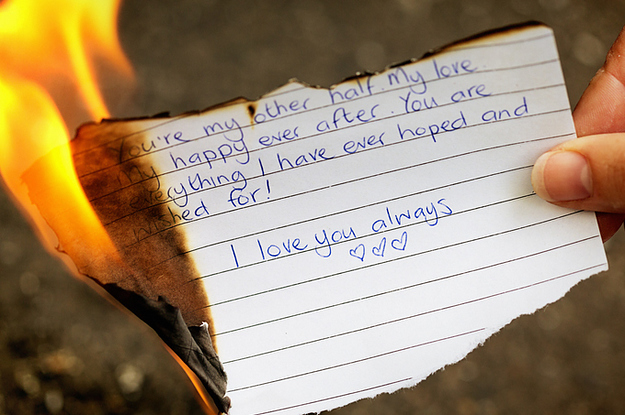 You're my other half. My love
My happy ever after. You are
everything I have ever hoped and
wished for!
I love you always
♡♡♡